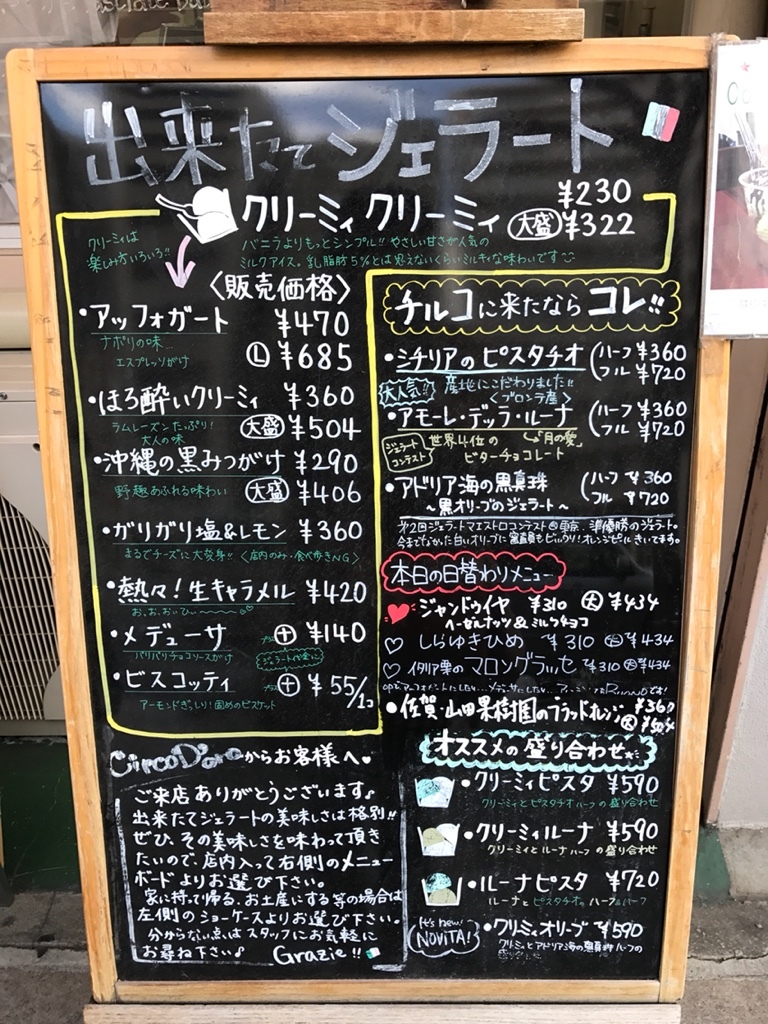 出来たてジェラート
クリーミィ クリーミィ
¥230
大盛 ¥322
クリーミィは
楽しみ方いろいろ!!
バニラよりもっとシンプル!! やさしい甘さが人気の
ミルクアイス。乳脂肪5%とは思えないくらいミルキィな味わいです
〈販売価格〉
・アッフォガート ¥470
ナポリの味…
エスプレッソがけ
Ⓛ ¥685
・ほろ酔いクリーミィ ¥360
ラムレーズンたっぷり!
大人の味
大盛 ¥504
・沖縄の黒みつがけ ¥290
野趣あふれる味わい
大盛 ¥406
・ガリガリ塩&レモン ¥360
まるでチーズに大変身!! 〈店内のみ・食べ歩きNG〉
・熱々!生キャラメル ¥420
お.お.おいひぃ〜
・メデューサ ⊕ ¥140
パリパリチョコソースがけ
ジェラート代金に
・ビスコッティ ⊕ ¥55/1コ
アーモンドぎっしり!固めのビスケット
チルコに来たなら コレ!!
・シチリアのピスタチオ (ハーフ ¥360
フル ¥720
大人気!! 産地にこだわりました!!
〈ブロンテ産〉
・アモーレ・デッラ・ルーナ (ハーフ ¥360
フル ¥720
ジェラート
コンテスト
世界4位の 「月の愛」
ビターチョコレート
・アドリア海の黒真珠 (ハーフ ¥360
フル ¥720
〜黒オリーブのジェラート〜
第2回ジェラートマエストロコンテスト@東京 準優勝のジェラート。
今までなかった白いオリーブに審査員もビックリ!オレンジピールきいてます。
本日の日替わりメニュー
ジャンドゥイヤ ¥310 大 ¥434
ヘーゼルナッツ&ミルクチョコ
しらゆきひめ ¥310 大 ¥434
イタリア栗のマロングラッセ ¥310 大 ¥434
・佐賀・山田果樹園のブラッドオレンジ ¥360
大 ¥504
オススメの盛り合わせ
・クリーミィピスタ ¥590
クリーミィとピスタチオ ハーフの盛り合わせ
・クリーミィルーナ ¥590
クリーミィとルーナ ハーフの盛り合わせ
・ルーナピスタ ¥720
ルーナとピスタチオの ハーフ&ハーフ
It's new!
NOVITA!
・クリーミィオリーブ ¥590
クリーミィとアドリア海の黒真珠 ハーフの
盛り合わせ
Circo D'oroからお客様へ
ご来店ありがとうございます♪
出来たてジェラートの美味しさは格別!!
ぜひ、その美味しさを味わって頂き
たいので、店内入って右側のメニュー
ボードよりお選び下さい。
家に持って帰る、お土産にする等の場合は
左側のショーケースよりお選び下さい。
分からない点はスタッフにお気軽に
お尋ね下さい♪ Grazie!!